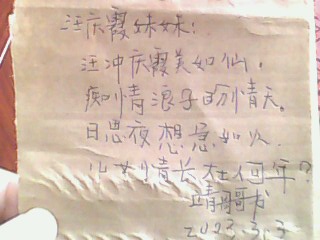 汪庆霞妹妹:
汪冲庆霞美如仙,
痴情浪子盼情天。
日思夜想急如火.
儿女情长在何年?
靖哥哥书
2023.3.3